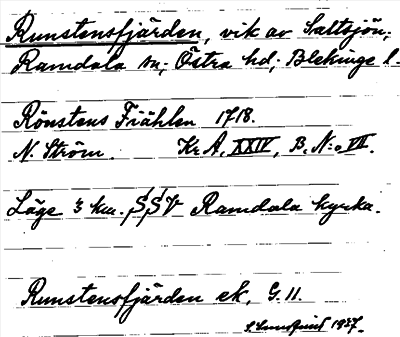 Runstensfjärden, vik av Saltsjön;
Ramdala sn; Östra hd; Blekinge l.
Rönstens Fiählen 1718.
N. Ström. Kr A, XXIV, B, N:o VII.
Läge 3 km. SSV Ramdala kyrka.
Runstensfjärden ek, G. 11.
1937.